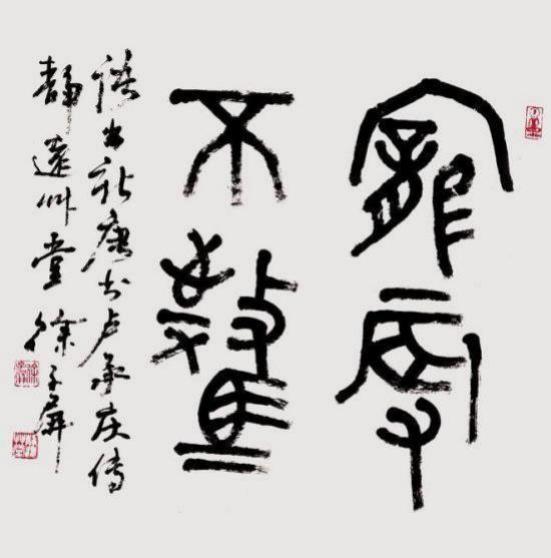 寵辱
不驚
語出新唐书卢承庆傳
静遠艸堂 徐子屏